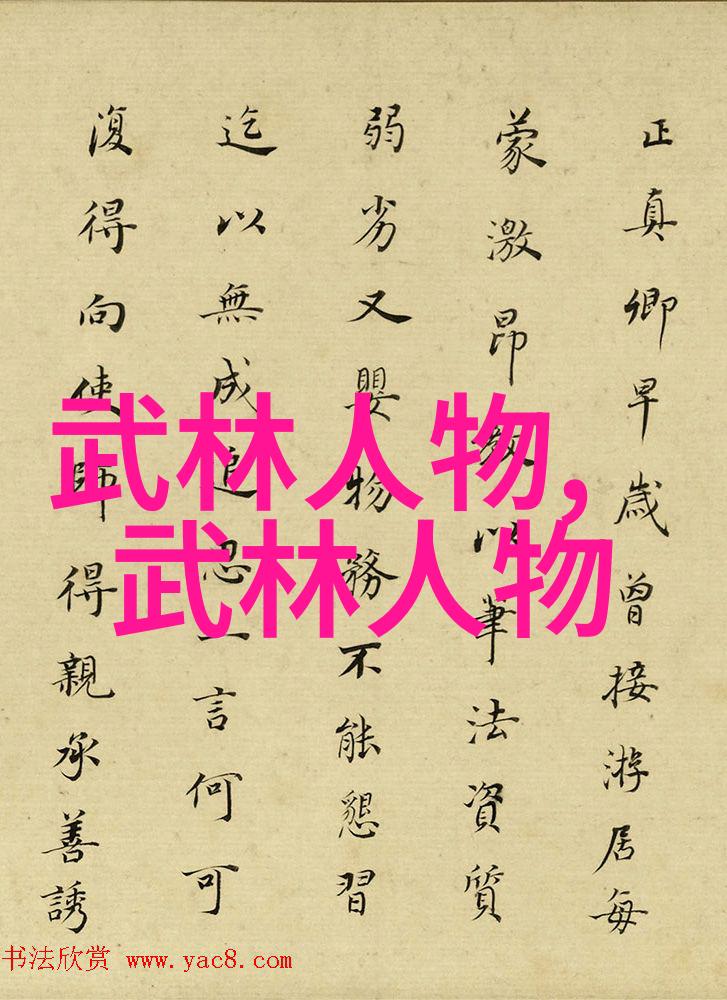 正真卿早歲曾接游居每
蒙激昂教以筆法資質
弱劣又嬰物務不能懇習
迄以無成追一言何可
復得向使師得親承善誘
武林人物,
武林人物
书法欣赏 www.yac8.com